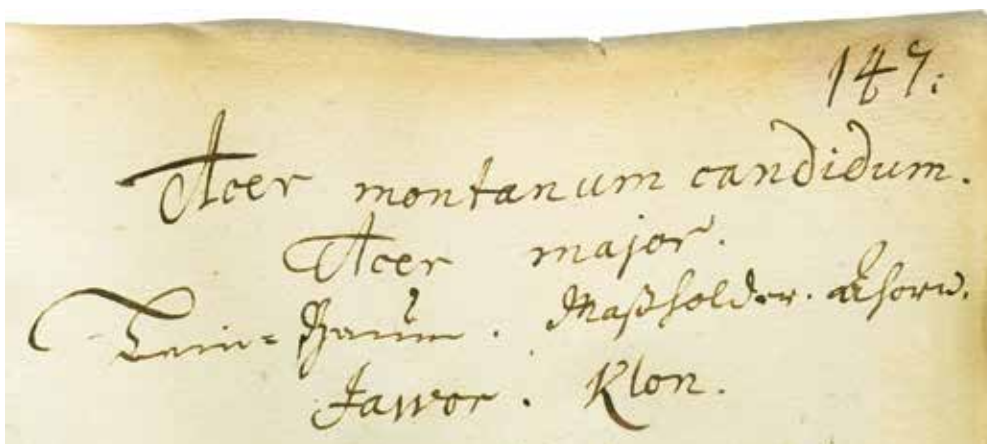 147.
Acer montanum candidum.
Acer major.
Lein=Baum. Maßholder. Ahorn.
Jawor. Klon.